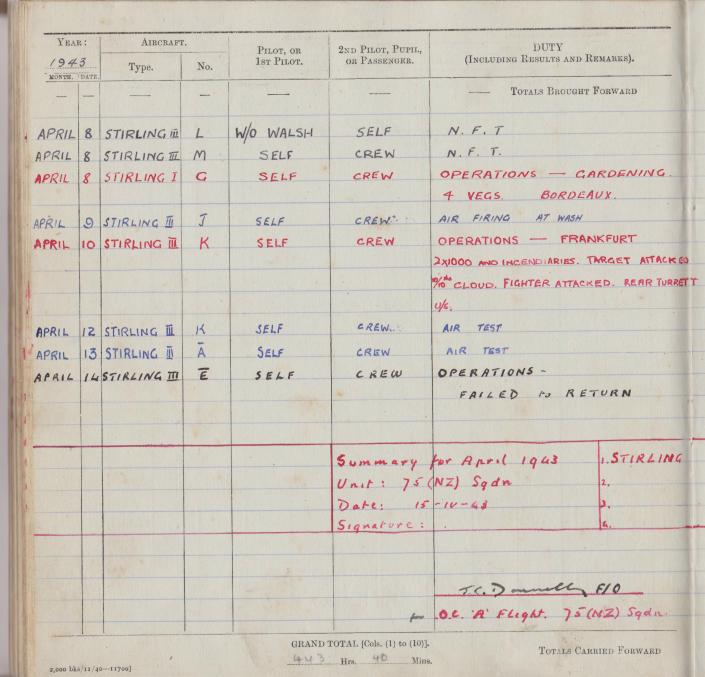 YEAR: AIRCRAFT. PILOT, OR 1ST PILOT. 2ND PILOT, PUPIL, OR PASSENGER. DUTY (INCLUDING RESULTS AND REMARKS).
1943
MONTH. DATE. Type. No.
— — — — — — TOTALS BROUGHT FORWARD
APRIL 8 STIRLING III L W/O WALSH SELF N.F.T
APRIL 8 STIRLING III M SELF CREW N.F.T.
APRIL 8 STIRLING I G SELF CREW OPERATIONS — GARDENING.
4 VEGS. BORDEAUX.
APRIL 9 STIRLING III J SELF CREW AIR FIRING AT WASH
APRIL 10 STIRLING III K SELF CREW OPERATIONS — FRANKFURT
2X1000 AND INCENDIARIES. TARGET ATTACKED
CLOUD. FIGHTER ATTACKED. REAR TURRETT
U/S.
APRIL 12 STIRLING III K SELF CREW. AIR TEST
APRIL 13 STIRLING A SELF CREW AIR TEST
APRIL 14 STIRLING III E SELF CREW OPERATIONS -
FAILED to RETURN
Summary for April 1943 1. STIRLING
Unit: 75(NZ) Sqdn 2.
Date: 15-IV-43 3.
Signature: 4.
F/O
for O.C. 'A' Flight. 75(NZ) Sqdn.
GRAND TOTAL [Cols. (1) to (10)].
443 Hrs. 40 Mins.
TOTALS CARRIED FORWARD
2,000 bks/11/40—11700]